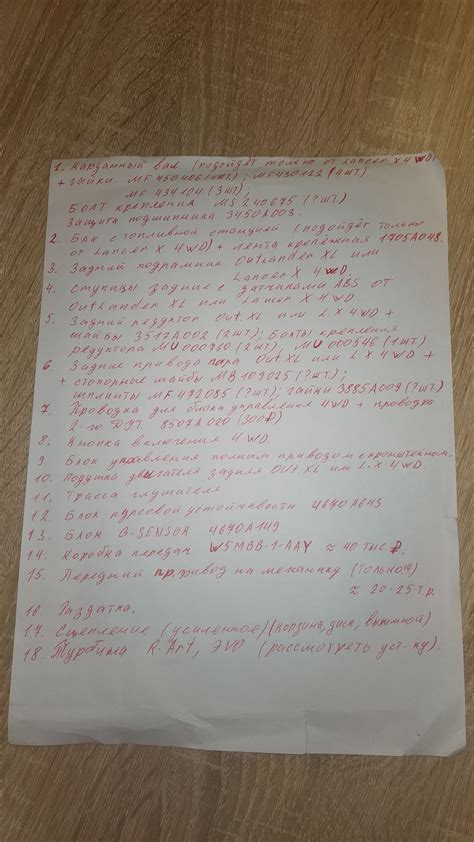 1. Карданный вал (подойдёт только от Lancer X 4WD)
+ гайки MF430406 (4шт.); MF430122 (4шт)
MF 434104 (3шт);
Болт крепления MS 240675 (?шт.)
Защита подшипника 3450A003.
2. Бак с топливной станцией (подойдёт только
от Lancer X 4WD) + лента крепёжная 1705A048.
3. Задний подрамник Outlander XL или
Lancer X 4WD.
4. Ступицы задние с датчиками ABS от
Outlander XL или Lancer X 4WD.
5. Задний редуктор Out. XL или L X 4WD +
шайбы 3517A002 (2шт); Болты крепления
редуктора MU000960 (2шт), MU 000546 (1шт)
6. Задние привода пара Out XL или L X 4WD +
+ стопорные шайбы MB 109025 (?шт);
шплинты MF 472085 (?шт); гайки 3885A009 (?шт.)
7. Проводка для блока управления 4WD + проводка
2-го ДУТ. 8507A020 (300₽)
8. Кнопка включения 4WD.
9. Блок управления полным приводом с кронштейном.
10. Подушка двигателя задняя Out. XL или L-X 4WD
11. Трасса глушителя
12. Блок курсовой устойчивости 4670A643
13. Блок G-SENSOR 4670A149
14. Коробка передач W5MBB-1-AAY ≈ 40 тыс ₽.
15. Передний привод на механику (только!)
≈ 20-25т.р.
16 Раздатка.
17. Сцепление (усиленное) (корзина, диск, выжимной)
18. Турбина R-Art, ЭVO (рассмотреть уст-ку).